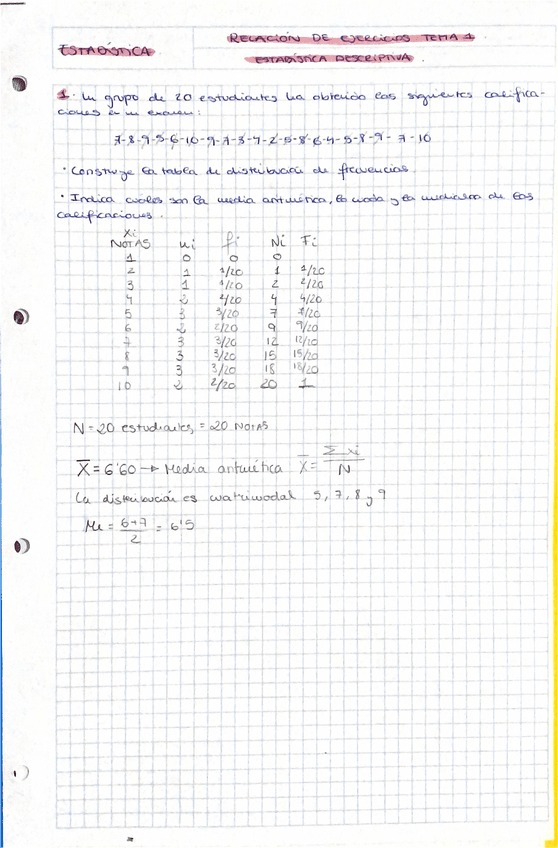 ESTADÍSTICA
RELACIÓN DE EJERCICIOS TEMA 1
ESTADÍSTICA DESCRIPTIVA.
1. Un grupo de 20 estudiantes ha obtenido las siguientes califica-
ciones en un examen:
7-8-9-5-6-10-9-7-3-4-2-5-8-6-4-5-8-9-7-10
· Construye la tabla de distribución de frecuencias.
· Indica cuáles son la media aritmética, la moda y la mediana de las
calificaciones.
Xi
NOTAS ni fi Ni Fi
1 0 0 0
2 1 1/20 1 1/20
3 1 1/20 2 2/20
4 2 2/20 4 4/20
5 3 3/20 7 7/20
6 2 2/20 9 9/20
7 3 3/20 12 12/20
8 3 3/20 15 15/20
9 3 3/20 18 18/20
10 2 2/20 20 1
N = 20 estudiantes = 20 NOTAS
X̄ = 6'60 → Media aritmética X̄ = Σ xi / N
La distribución es cuatrimodal 5, 7, 8 y 9
Me = 6+7 / 2 = 6'5